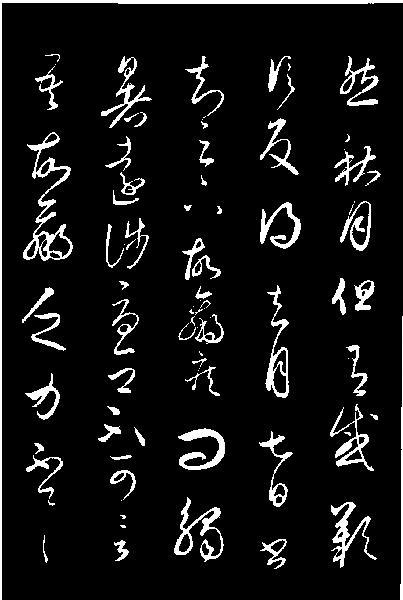 然秋月但有感歎
信反得去月七日書
知足下故羸疾問觸
暑遠涉憂卿不可言
吾故羸乏力不